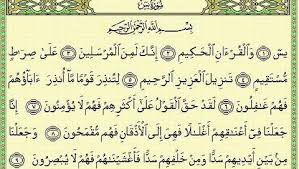 سورة يس
بِسْمِ ٱللَّهِ ٱلرَّحْمَٰنِ ٱلرَّحِيمِ
يسٓ ١ وَٱلْقُرْءَانِ ٱلْحَكِيمِ ٢ إِنَّكَ لَمِنَ ٱلْمُرْسَلِينَ ٣ عَلَىٰ صِرَٰطٍ
مُّسْتَقِيمٍ ٤ تَنزِيلَ ٱلْعَزِيزِ ٱلرَّحِيمِ ٥ لِتُنذِرَ قَوْمًا مَّآ أُنذِرَ ءَابَآؤُهُمْ
فَهُمْ غَٰفِلُونَ ٦ لَقَدْ حَقَّ ٱلْقَوْلُ عَلَىٰٓ أَكْثَرِهِمْ فَهُمْ لَا يُؤْمِنُونَ ٧ إِنَّا
جَعَلْنَا فِىٓ أَعْنَٰقِهِمْ أَغْلَٰلًا فَهِىَ إِلَى ٱلْأَذْقَانِ فَهُم مُّقْمَحُونَ ٨ وَجَعَلْنَا
مِنۢ بَيْنِ أَيْدِيهِمْ سَدًّا وَمِنْ خَلْفِهِمْ سَدًّا فَأَغْشَيْنَٰهُمْ فَهُمْ لَا يُبْصِرُونَ ٩